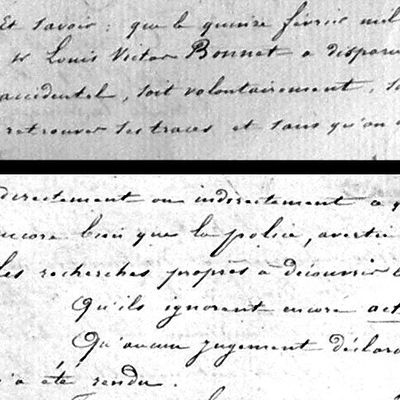 Et savoir : que le quinze février mil
Mr Louis Victor Bonnet a disparu
accidentel, soit volontairement, sa
retrouver ses traces et sans qu'on
directement ou indirectement a
encore bien que la police, avertie
les recherches propres à découvrir
Qu'ils ignorent encore act
Qu'aucun jugement déclara
n'a été rendu.